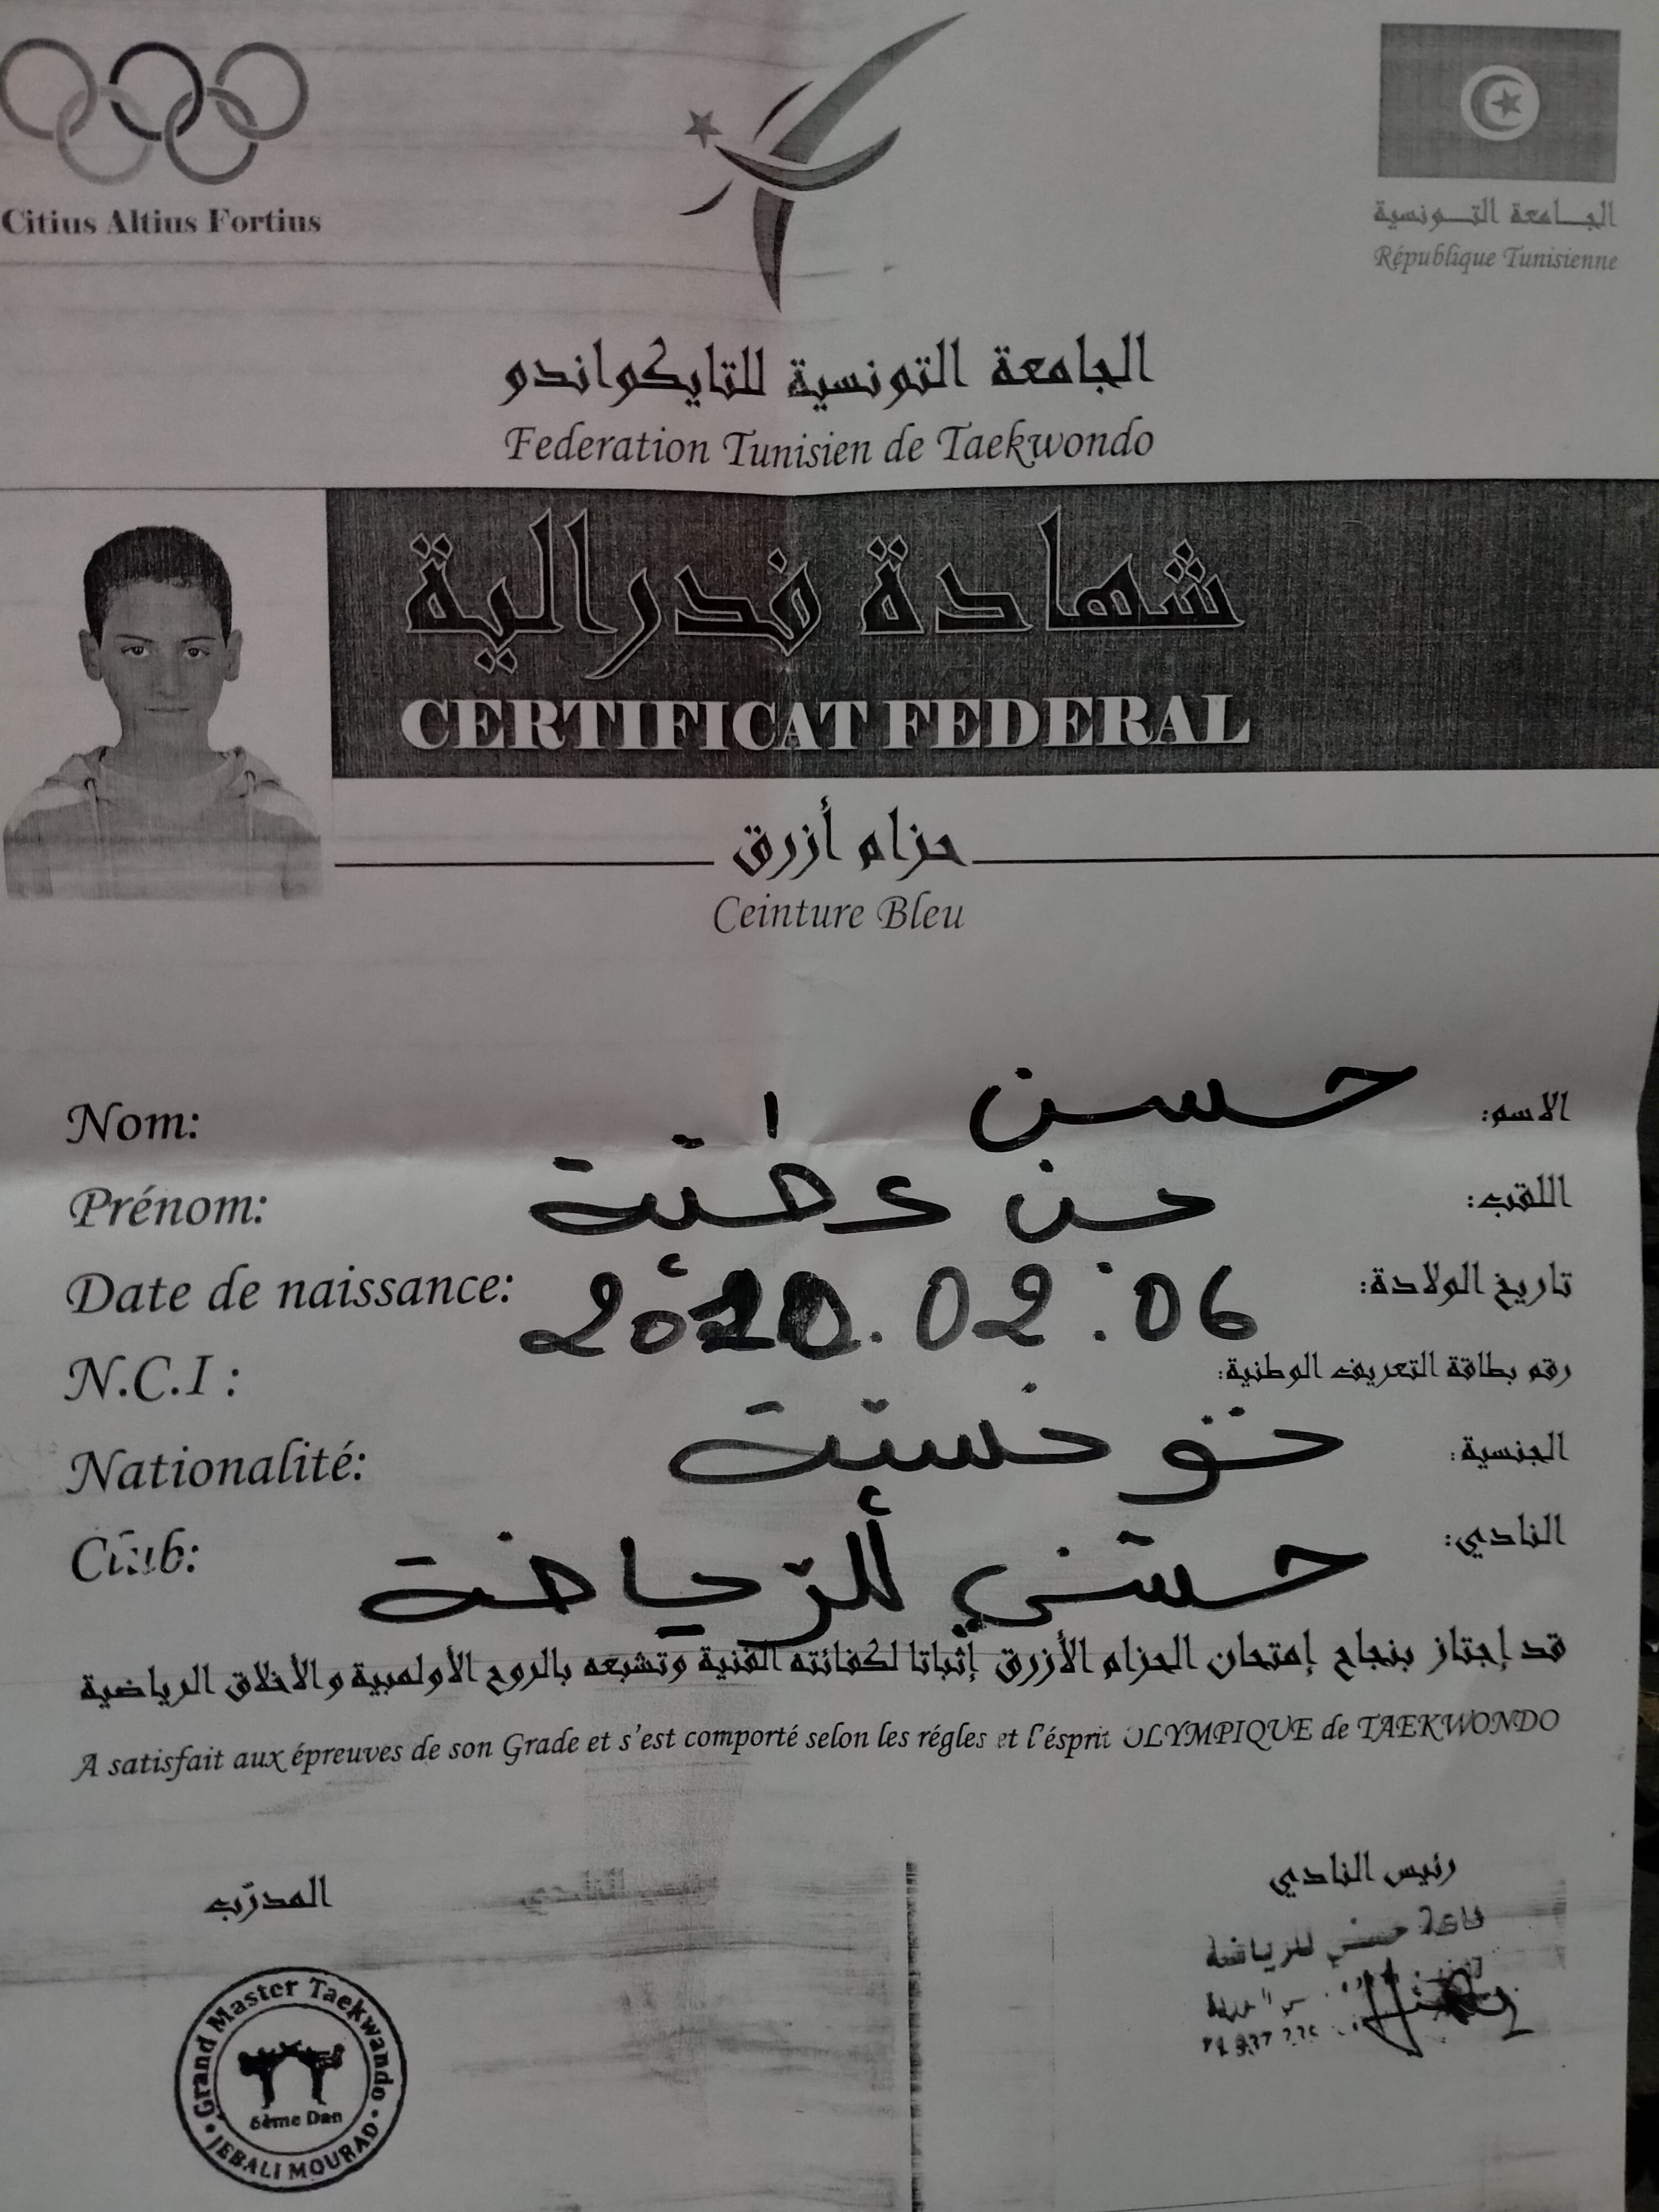 Citius Altius Fortius
الجامعة التونسية
République Tunisienne
الجامعة التونسية للتايكواندو
Federation Tunisien de Taekwondo
شهادة فدرالية
CERTIFICAT FEDERAL
حزام أزرق
Ceinture Bleu
Nom: حسن الاسم:
Prénom: بن عطية اللقب:
Date de naissance: 2010.02.06 تاريخ الولادة:
N.C.I : رقم بطاقة التعريف الوطنية:
Nationalité: تونسية الجنسية:
Club: حسني للرياضة النادي:
قد إجتاز بنجاح إمتحان الحزام الأزرق إثباتا لكفائته الفنية وتشبعه بالروح الأولمبية والأخلاق الرياضية
A satisfait aux épreuves de son Grade et s'est comporté selon les régles et l'ésprit OLYMPIQUE de TAEKWONDO
المدرّب
رئيس النادي
قاعة حسني للرياضة
Grand Master Taekwando
6ème Dan
JEBALI MOURAD